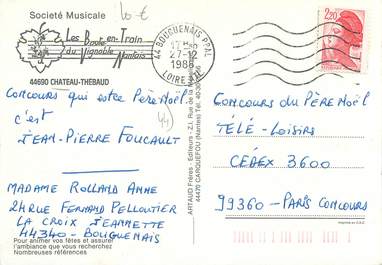 Société Musicale
10 €
Les Boute-en-Train
du Vignoble Nantais
44690 CHATEAU-THÉBAUD
44 BOUGUENAIS PPAL
27-12
1986
LOIRE
2,20
CONCOURS qui est le PÈRE NOËL
c'est
JEAN-PIERRE FOUCAULT
44
MADAME ROLLAND ANNE
24 RUE FERNAND PELLOUTIER
LA CROIX JEANNETTE
44340 - BOUGUENAIS
Pour animer vos fêtes et assurer
l'ambiance que vous recherchez
Nombreuses références
ARTAUD Frères - Editeurs - Z.I. Rue de la
44470 CARQUEFOU (Nantes) Tél. 40-30
CONCOURS DU PÈRE NOËL
TÉLÉ - LOISIRS
CÉDEX 3600
99360 - PARIS CONCOURS